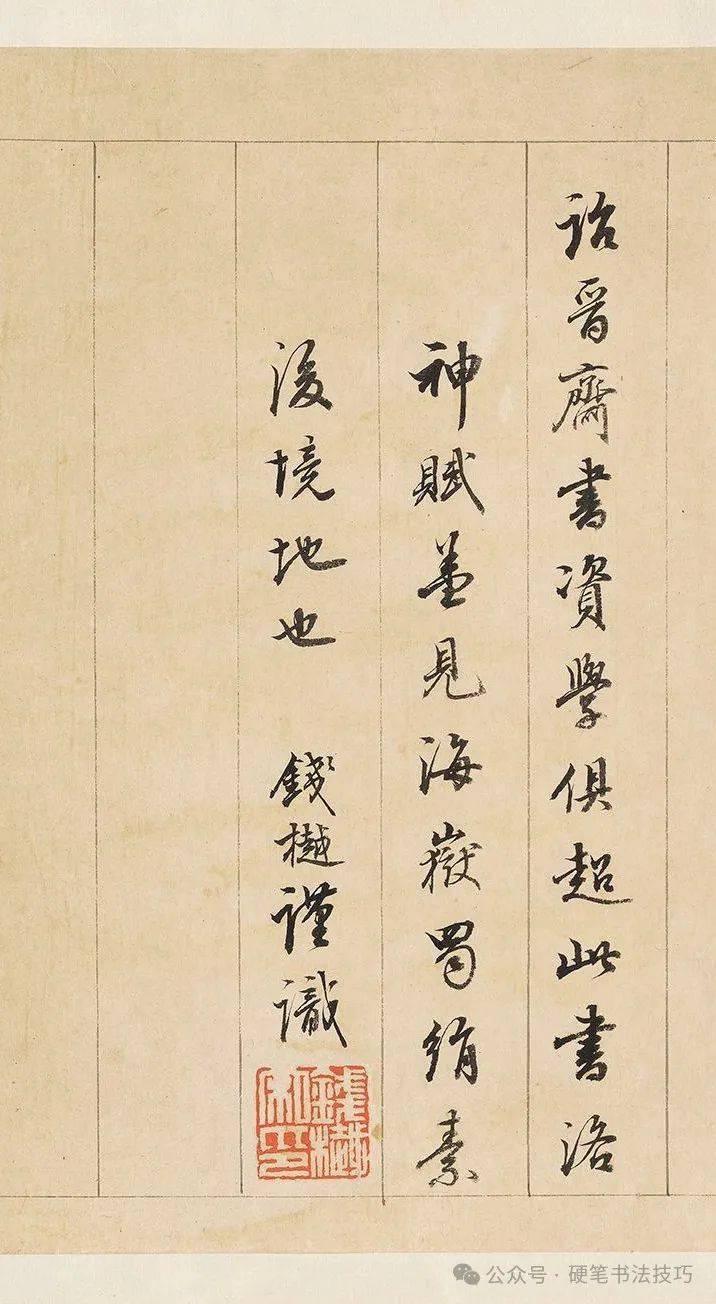 詒晉齋書資學俱超此書洛
神賦並見海嶽蜀絹素
後境地也 錢樾謹識
公众号·硬笔书法技巧